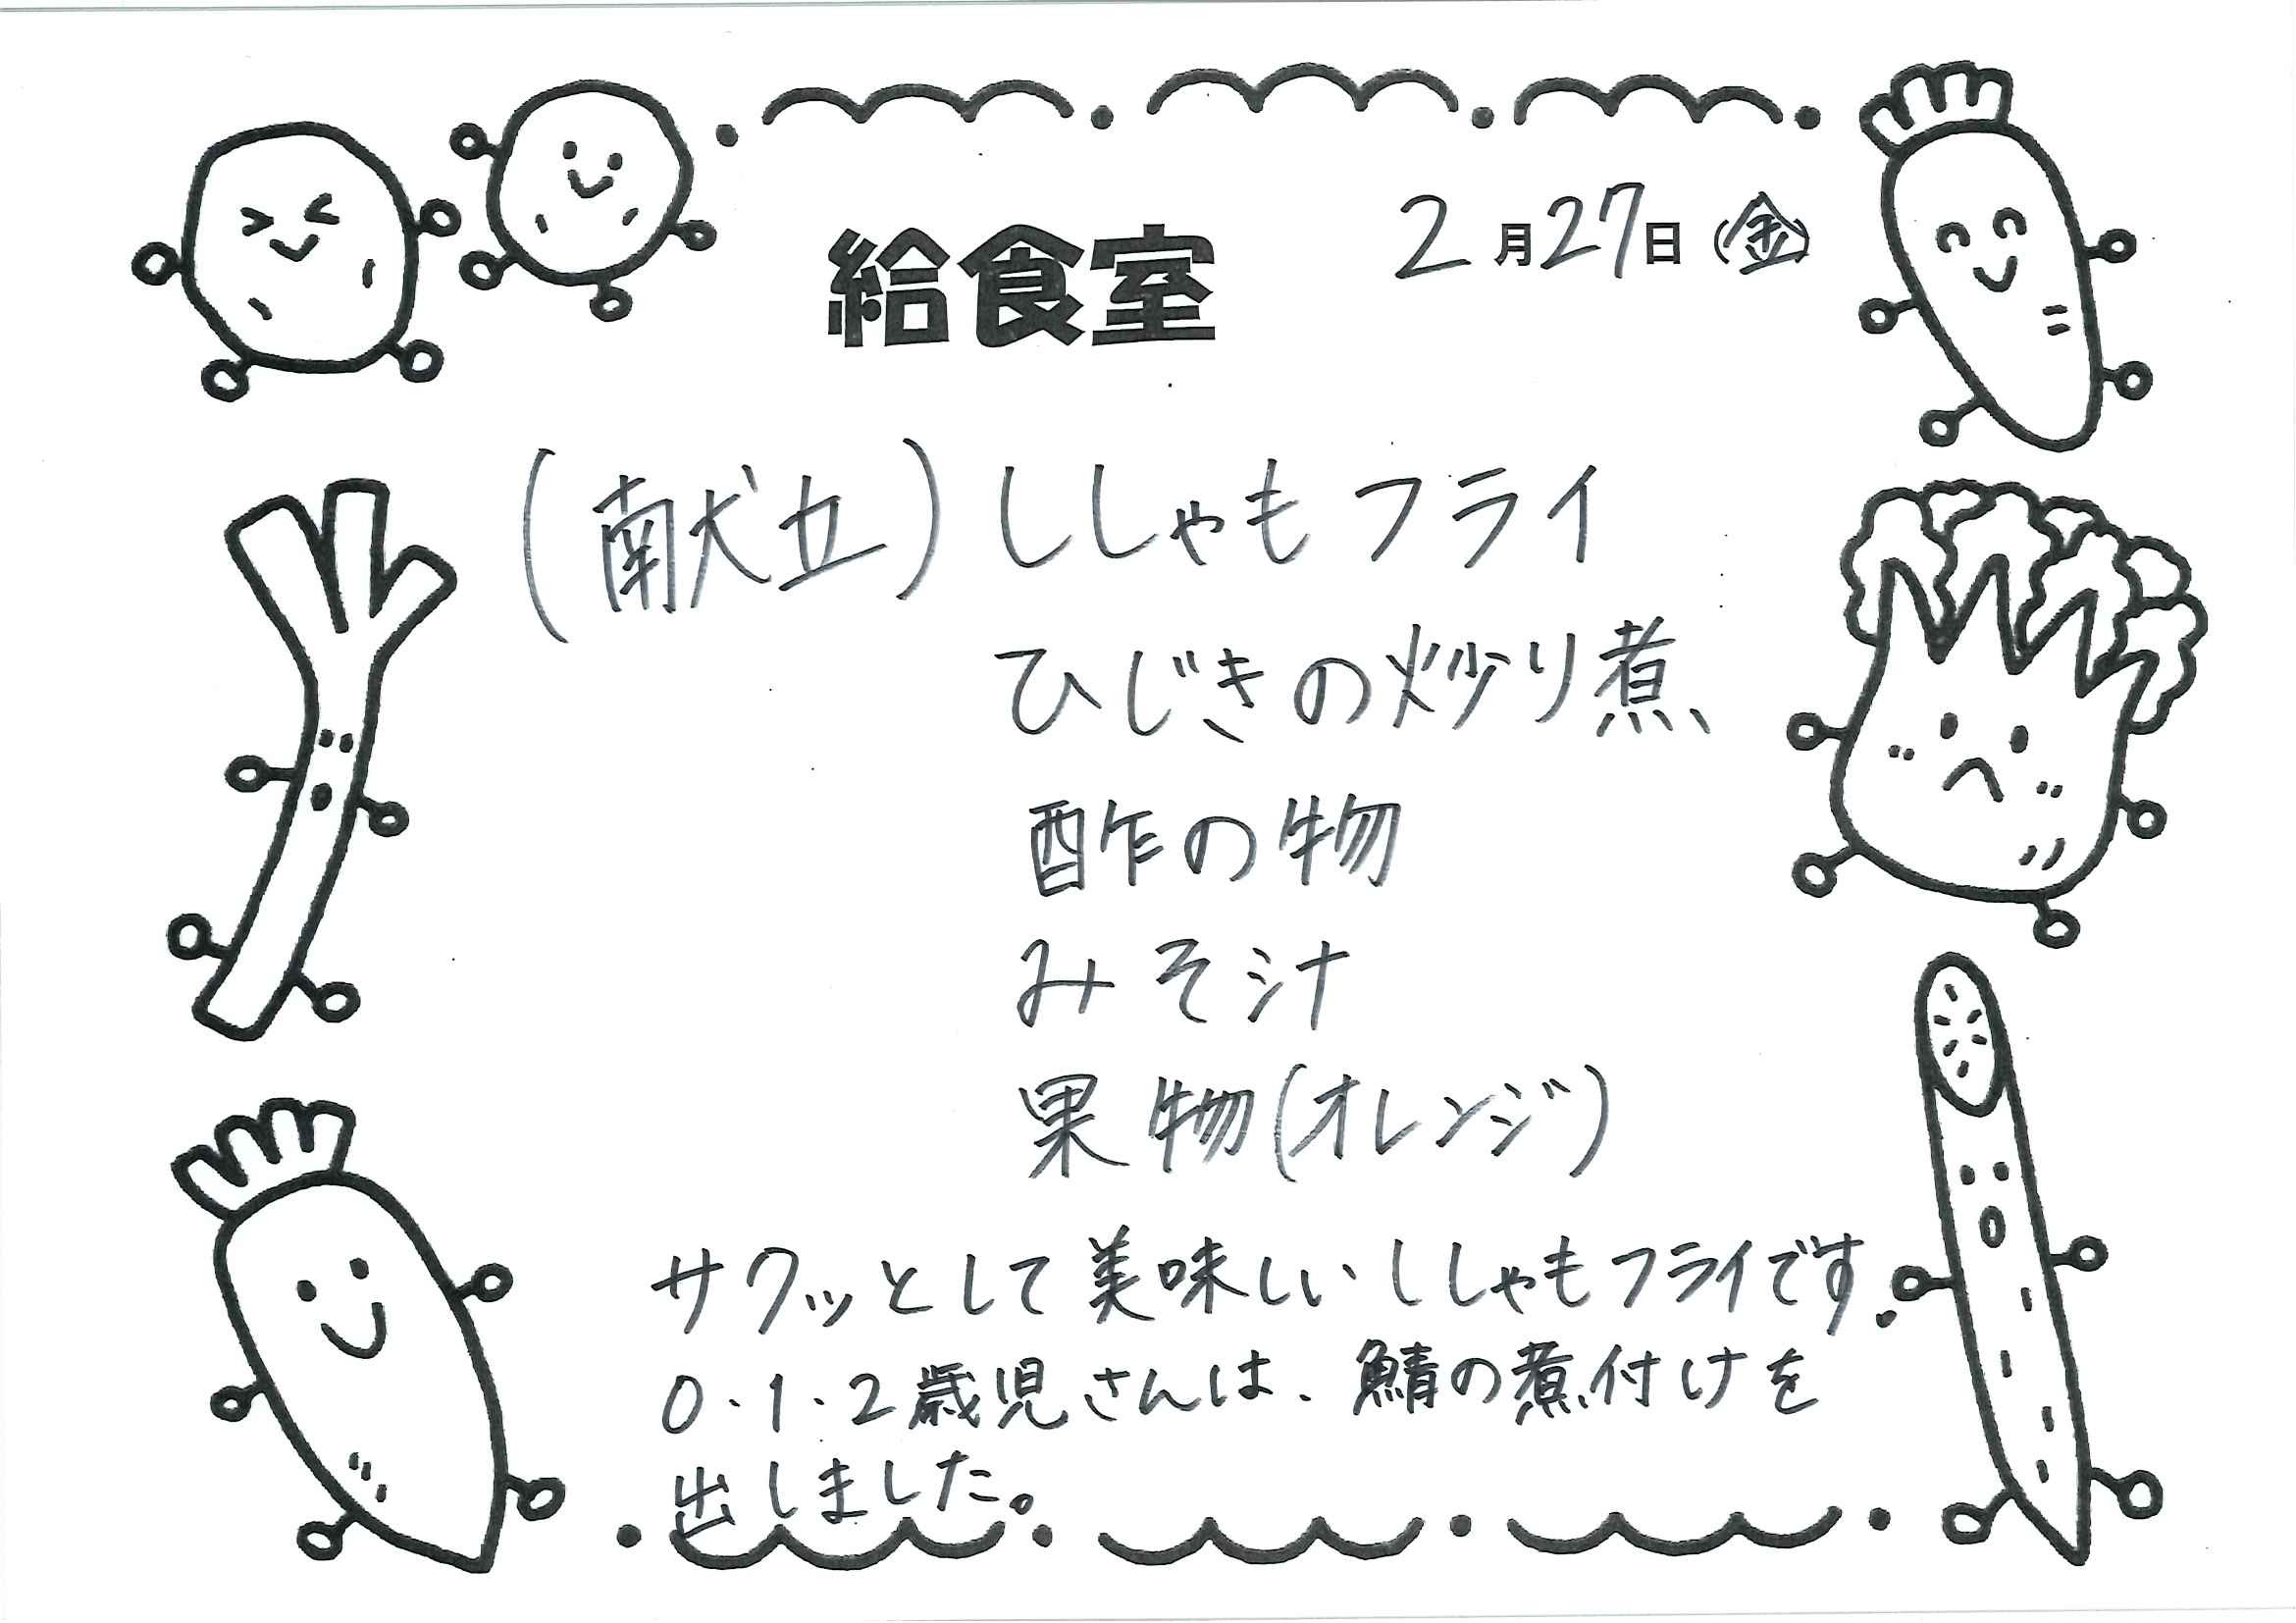 給食室
2月27日(金)
(献立)ししゃもフライ
ひじきの炒り煮
酢の物
みそ汁
果物(オレンジ)
サクッとして美味しいししゃもフライです.
0.1.2歳児さんは、鯖の煮付けを
出しました。